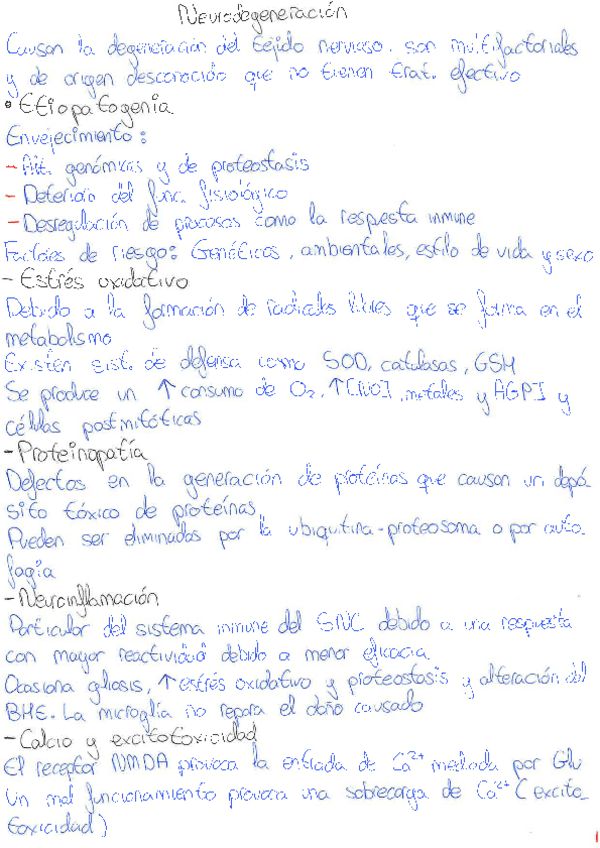 Neurodegeneración
Causan la degeneración del tejido nervioso. son multifactoriales
y de origen desconocido que no tienen trat. efectivo
• Etiopatogenia
Envejecimiento:
- Alt. genómicas y de proteostasis
- Deterioro del func. fisiológico
- Desregulación de procesos como la respuesta inmune
Factores de riesgo: Genéticos, ambientales, estilo de vida y sexo
- Estrés oxidativo
Debido a la formación de radicales libres que se forma en el
metabolismo
Existen sist. de defensa como SOD, catalasas, GSH
Se produce un ↑ consumo de O₂, ↑[NO], metales y AGPI y
células postmitóticas
- Proteinopatía
Defectos en la generación de proteínas que causan un depó
sito tóxico de proteínas
Pueden ser eliminadas por la ubiquitina-proteosoma o por auto.
fagia
- Neuroinflamación
Particular del sistema inmune del SNC debido a una respuesta
con mayor reactividad debido a menor eficacia
Ocasiona gliosis, ↑ estrés oxidativo y proteostasis y alteración del
BHE. La microglía no repara el daño causado
- Calcio y excitotoxicidad
El receptor NMDA provoca la entrada de Ca²⁺ mediada por Glu
Un mal funcionamiento provoca una sobrecarga de Ca²⁺ (excito_
toxicidad)